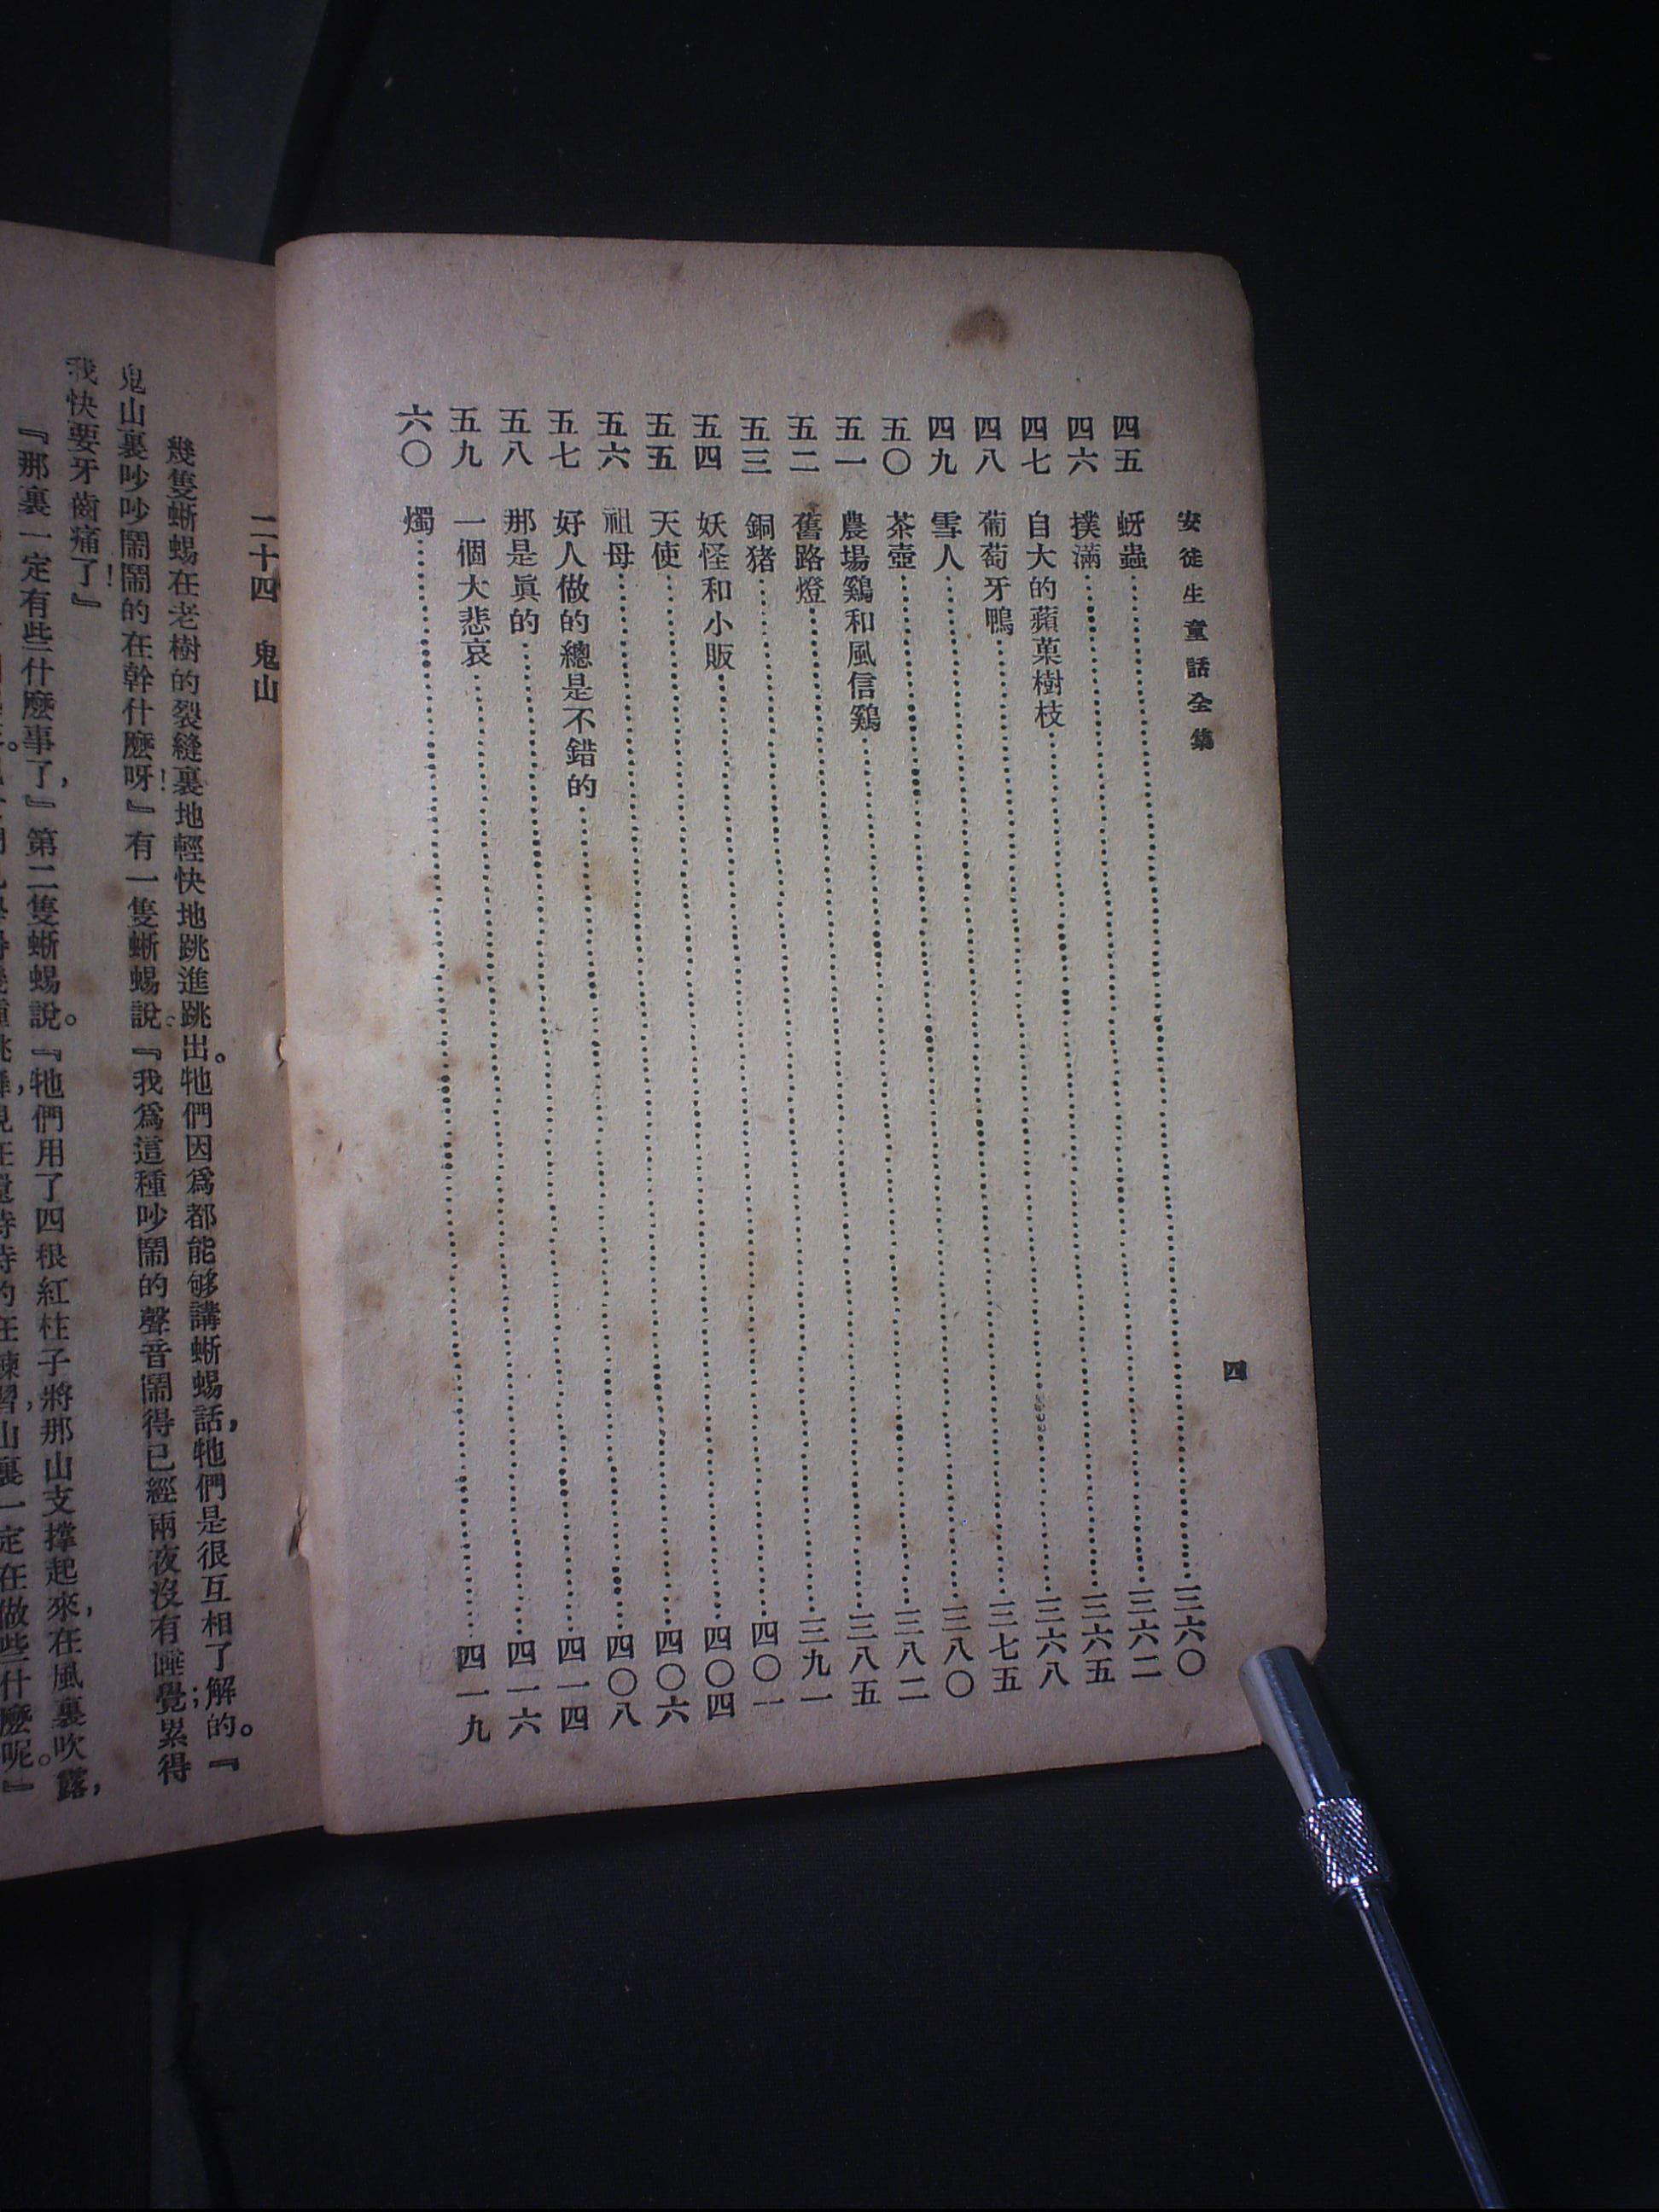 安徒生童話全集
四
四五 蚜蟲……三六〇
四六 撲滿……三六二
四七 自大的蘋菓樹枝……三六五
四八 葡萄牙鴨……三六八
四九 雪人……三七五
五〇 茶壺……三八〇
五一 農場鷄和風信鷄……三八二
五二 舊路燈……三八五
五三 銅猪……三九一
五四 妖怪和小販……四〇一
五五 天使……四〇四
五六 祖母……四〇六
五七 好人做的總是不錯的……四〇八
五八 那是眞的……四一四
五九 一個大悲哀……四一六
六〇 燭……四一九
二十四 鬼山
幾隻蜥蜴在老樹的裂縫裏地輕快地跳進跳出。牠們因爲都能够講蜥蜴話，牠們是很互相了解的。『
鬼山裏吵吵鬧鬧的在幹什麼呀！』有一隻蜥蜴說。『我爲這種吵鬧的聲音鬧得已經兩夜沒有睡覺；累得
我快要牙齒痛了！』
『那裏一定有些什麼事了，』第二隻蜥蜴說。『牠們用了四根紅柱子將那山支撑起來，在風裏吹露，
山裏一定在做些什麼呢。』